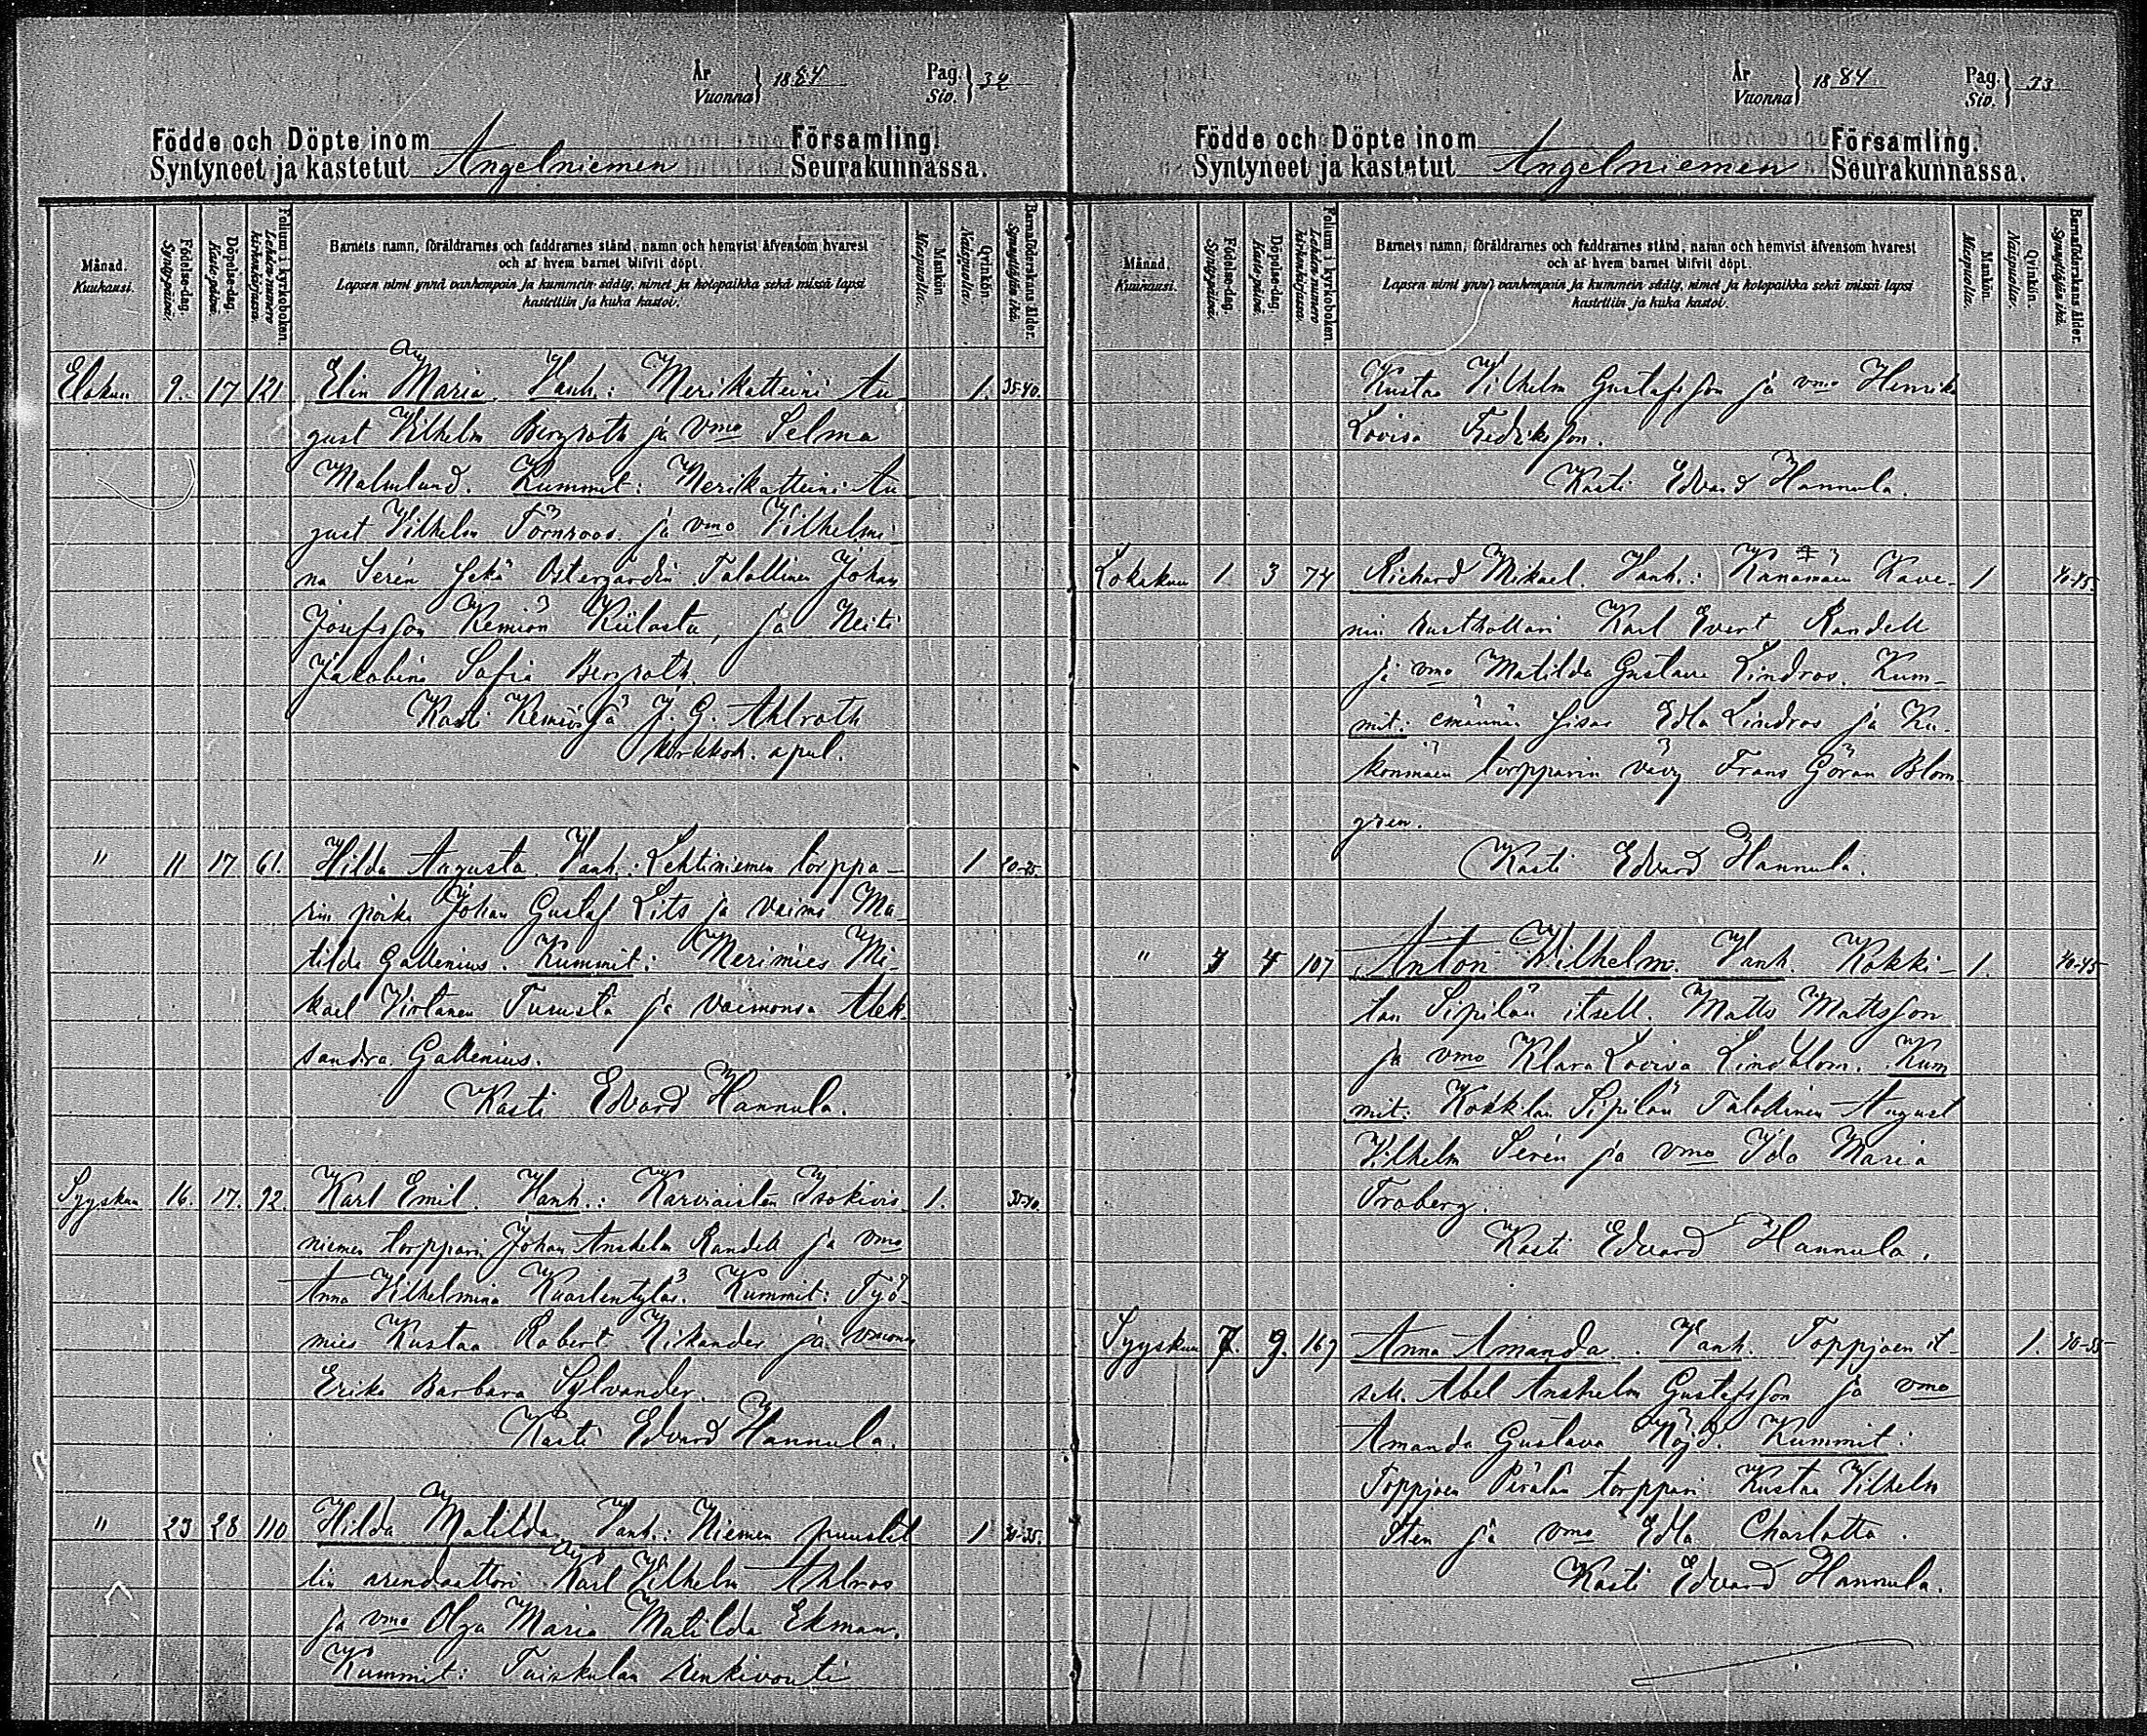 År
Vuonna } 1884 Pag.
Siv. } 32
Födde och Döpte inom Församling.
Syntyneet ja kastetut Angelniemen Seurakunnassa.
Månad.
Kuukausi.
Födelse-dag.
Syntypäivä.
Döpelse-dag.
Kaste-päivä.
Folium i kyrkoboken.
Lehden numero kirkonkirjassa.
Barnets namn, föräldrarnes och faddrarnes stånd, namn och hemvist äfvensom hvarest
och af hvem barnet blifvit döpt.
Lapsen nimi ynnä vanhempain ja kummein sääty, nimet ja kotopaikka sekä missä lapsi
kastettiin ja kuka kastoi.
Mankön.
Miespuolia.
Qvinkön.
Naispuolia.
Barnaföderskans ålder.
Synnyttäjän ikä.
Elokuu 9. 17 121 Elin Maria. Vanh.: Merikatteini Au- 1. 35-40.
gust Vilhelm Bergroth ja vmo Selma
Malmlund. Kummit: Merikatteini Au-
gust Vilhelm Törnroos ja vmo Vilhelmi-
na Serén sekä Östergårdin Talollinen Johan
Josefsson Kemiön Kiilasta, ja Neiti
Jakobina Sofia Bergroth.
Kasti Kemiössä J. G. Ahlroth
kirkkoh. apul.
" 11 17 61. Hilda Augusta. Vanh.: Lehtiniemen torppa- 1
rin poika Johan Gustaf Lits ja vaimo Ma-
tilda Gallenius. Kummit: Merimies Mi-
kael Virtanen Turusta ja vaimonsa Alek-
sandra Gallenius.
Kasti Edvard Hannula.
Syyskuu 16. 17. 92. Karl Emil. Vanh.: Karviaisten Isokivis 1.
niemen torppari Johan Anshelm Randell ja vmo
Anna Vilhelmina Kaarlentytär. Kummit: Työ-
mies Kustaa Robert Nikander ja vmonsa
Erika Barbara Sylvander.
Kasti Edvard Hannula.
" 23 28 110 Hilda Matilda. Vanh.: Niemen puustel- 1 30-35.
lin arendaattori Karl Vilhelm Ahlroos
ja vmo Olga Maria Matilda Ekman.
Kummit: Tuiskulan Renkivouti
År
Vuonna } 1884 Pag.
Siv. } 33
Födde och Döpte inom Församling.
Syntyneet ja kastetut Angelniemen Seurakunnassa.
Månad.
Kuukausi.
Födelse-dag.
Syntypäivä.
Döpelse-dag.
Kaste-päivä.
Folium i kyrkoboken.
Lehden numero kirkonkirjassa.
Barnets namn, föräldrarnes och faddrarnes stånd, namn och hemvist äfvensom hvarest
och af hvem barnet blifvit döpt.
Lapsen nimi ynnä vanhempain ja kummein sääty, nimet ja kotopaikka sekä missä lapsi
kastettiin ja kuka kastoi.
Mankön.
Miespuolia.
Qvinkön.
Naispuolia.
Barnaföderskans ålder.
Synnyttäjän ikä.
Kustaa Vilhelm Gustafsson ja vmo Henrika
Lovisa Fredriksson.
Kasti Edvard Hannula.
Lokakuu 1 3 74 Richard Mikael. Vanh.: Kanamäen Kave- 1 40-45.
nin rusthollari Karl Evert Randell
ja vmo Matilda Gustava Lindros. Kum-
mit: emännän sisar Edla Lindros ja Ku-
konmäen torpparin vävy Frans Göran Blom-
gren.
Kasti Edvard Hannula.
" 3 4 107 Anton Vilhelm. Vanh. Kokki- 1. 40-45
lan Sipilän itsell. Matts Mattsson
ja vmo Klara Lovisa Lindblom. Kum
mit: Kokkilan Sipilän Talollinen August
Vilhelm Serén ja vmo Ida Maria
Troberg.
Kasti Edvard Hannula.
Syyskuu 7. 9. 167 Anna Amanda. Vanh. Toppjoen it- 1.
sell. Abel Anshelm Gustafsson ja vmo
Amanda Gustava Nöjd. Kummit:
Toppjoen Perälän torppari Kustaa Vilhelm
Sten ja vmo Edla Charlotta.
Kasti Edvard Hannula.